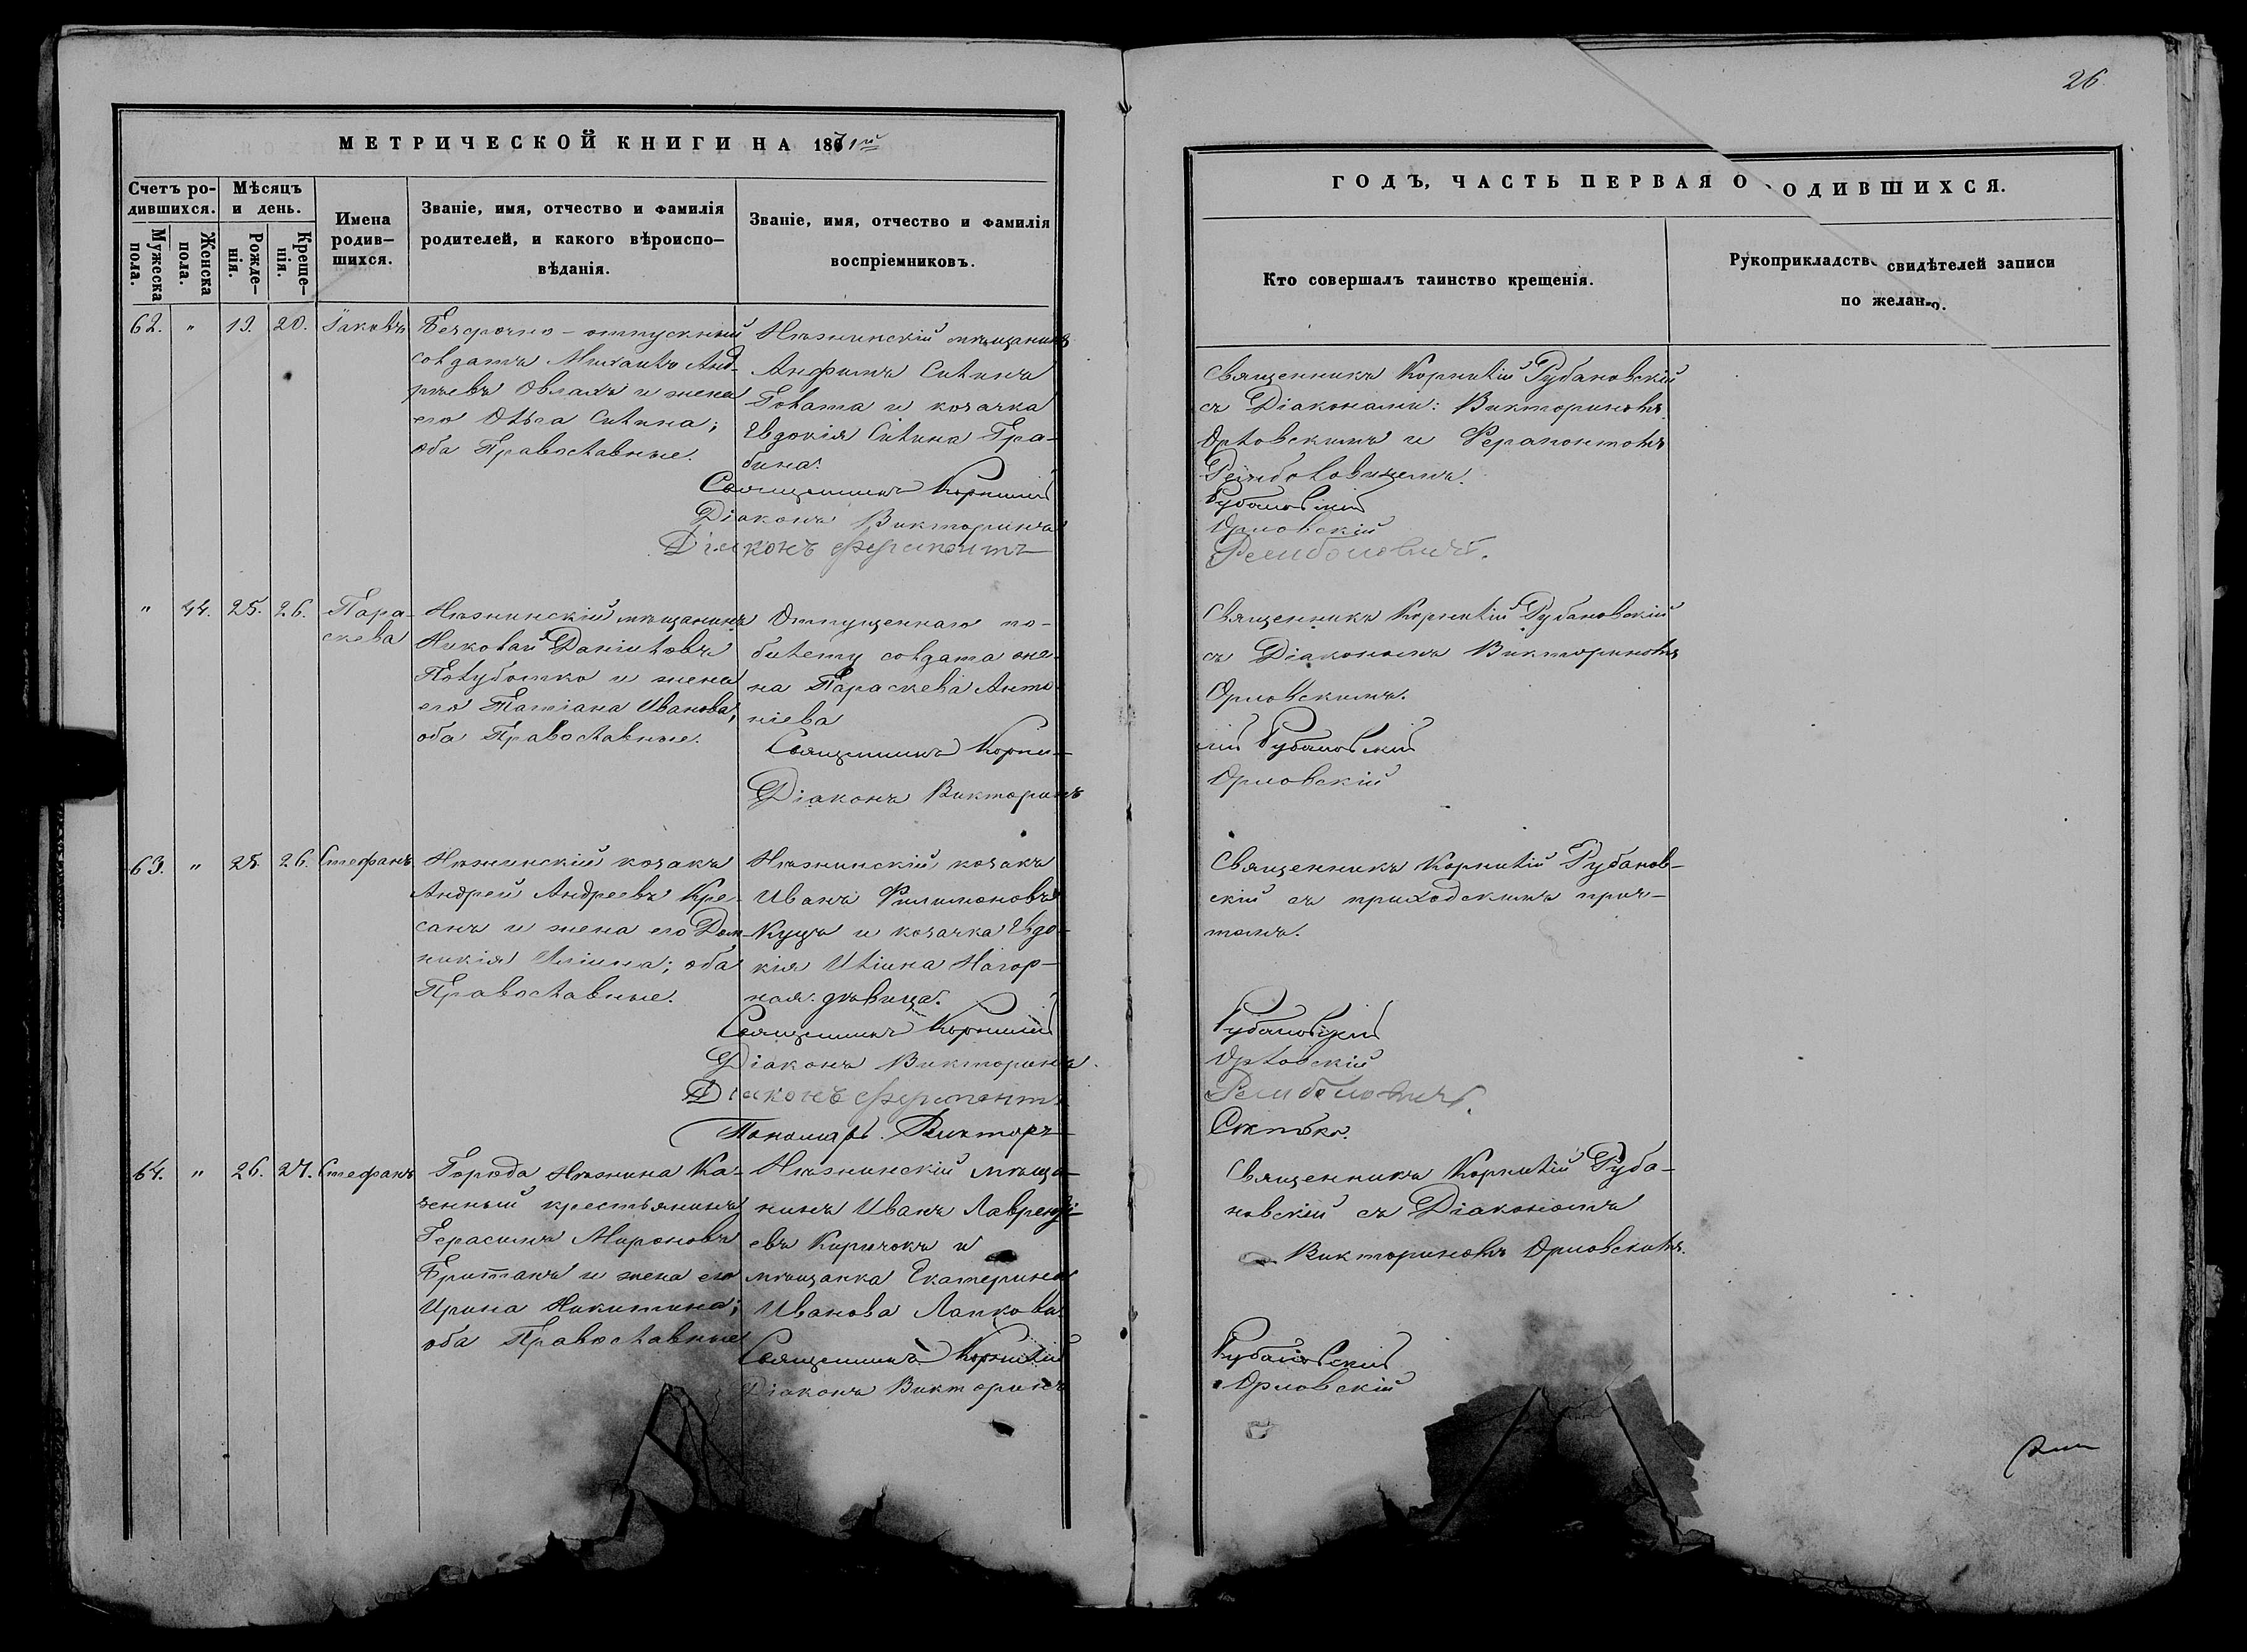 26
МЕТРИЧЕСКОЙ КНИГИ НА 1871й
ГОДЪ, ЧАСТЬ ПЕРВАЯ О ОДИВШИХСЯ.
Счетъ ро-
дившихся.
Мужеска
пола.
Женска
пола.
Мѣсяцъ
и день.
Рожде-
нія.
Креще-
нія.
Имена
родив-
шихся.
Званіе, имя, отчество и фамилія
родителей, и какого вѣроиспо-
вѣданія.
Званіе, имя, отчество и фамилія
воспріемниковъ.
Кто совершалъ таинство крещенія.
Рукоприкладств свидѣтелей записи
по желан
62. " 19. 20. Іаковъ
Безсрочно-отпускный
солдатъ Михаилъ Анд-
реевъ Овлахъ и жена
его Ольга Силина;
оба Православные.
Нѣжинскій мѣщанинъ
Анфимъ Силинъ
Голата и козачка
Евдокія Силина Гра-
бина.
Священникъ Корнилій
Діаконъ Викторинъ
Діаконъ Ферапонтъ
Священникъ Корнилій Рубановскій
съ Діаконами: Викториномъ
Орловскимъ и Ферапонтомъ
Рембаловичемъ.
Рубановскій
Орловскій
Рембаловичъ.
" 44. 25. 26. Пара-
скева
Нѣжинскій мѣщанинъ
Николай Даніиловъ
Полуботко и жена
его Татіана Иванова;
оба Православные.
Отпущеннаго по-
билету солдата жена
Параскева Анто-
ніева
Священникъ Корни-
Діаконъ Викторинъ
Священникъ Корнилій Рубановскій
съ Діакономъ Викториномъ
Орловскимъ.
лій Рубановскій
Орловскій
63. " 25. 26. Стефанъ
Нѣжинскій козакъ
Андрей Андреевъ Кре-
санъ и жена его Дом-
никія Иліина; оба
Православные.
Нѣжинскій козакъ
Иванъ Филимоновъ
Куцъ и козачка Евдо-
кія Иліина Нагор-
ная. дѣвица.
Священникъ Корнилій
Діаконъ Викторинъ
Діаконъ Ферапонтъ
Пономарь Викторъ
Священникъ Корнилій Рубанов-
скій съ приходскимъ прич-
томъ.
Рубановскій
Орловскій
Рембаловичъ.
64. " 26. 27. Стефанъ
Города Нѣжина Ка-
зенный крестьянинъ
Герасимъ Мироновъ
Бритланъ и жена его
Ирина Никитина;
оба Православные
Нѣжинскій мѣща-
нинъ Иванъ Лаврентi-
евъ Киричокъ и
мѣщанка Екатерина
Иванова Лапкова.
Священникъ Корнилій
Діаконъ Викторинъ
Священникъ Корнилій Руба-
новскій съ Діакономъ
Викториномъ Орловскимъ.
Рубановскій
Орловскій